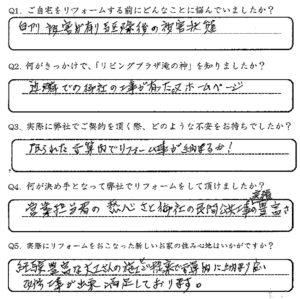 Q1. ご自宅をリフォームする前にどんなことに悩んでいましたか？
白アリ被害が有り
Q2. 何がきっかけで、「リビングプラザ滝の神」を知りましたか？
近隣での御社の工事が有った為 ホームページ
Q3. 実際に弊社でご契約を頂く際、どのような不安をお持ちでしたか？
限られた予算内でリフォーム工事が納まるか！
Q4. 何が決め手となって弊社でリフォームをして頂けましたか？
営業担当者の熱心さと御社の民間公共工事の実績豊富さ
Q5. 実際にリフォームをおこなった新しいお家の住み心地はいかがですか？
経験豊富な大工さんの施工と提案で予算内に納まり良い
工事が出来満足しております。